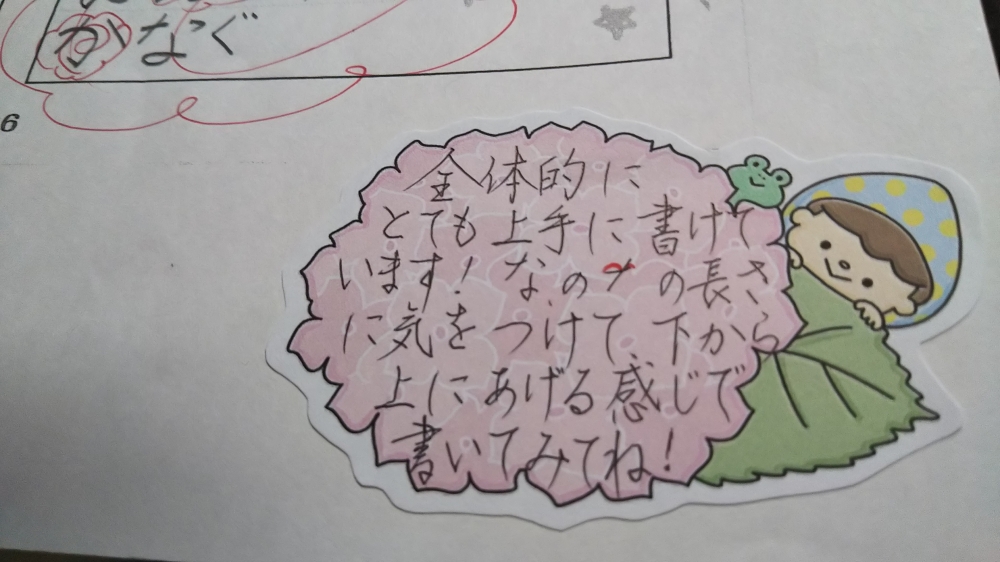 かなぐ
6
全体的に
とても上手に書けて
います！なの の長さ
に気をつけて、下から
上にあげる感じで
書いてみてね！